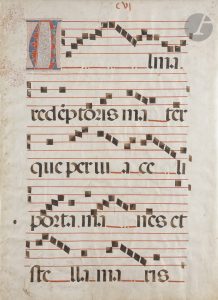 CVI
A lma
redēptoris ma ter
que per uia a ce li
porta ma nes et
ste lla ma ris